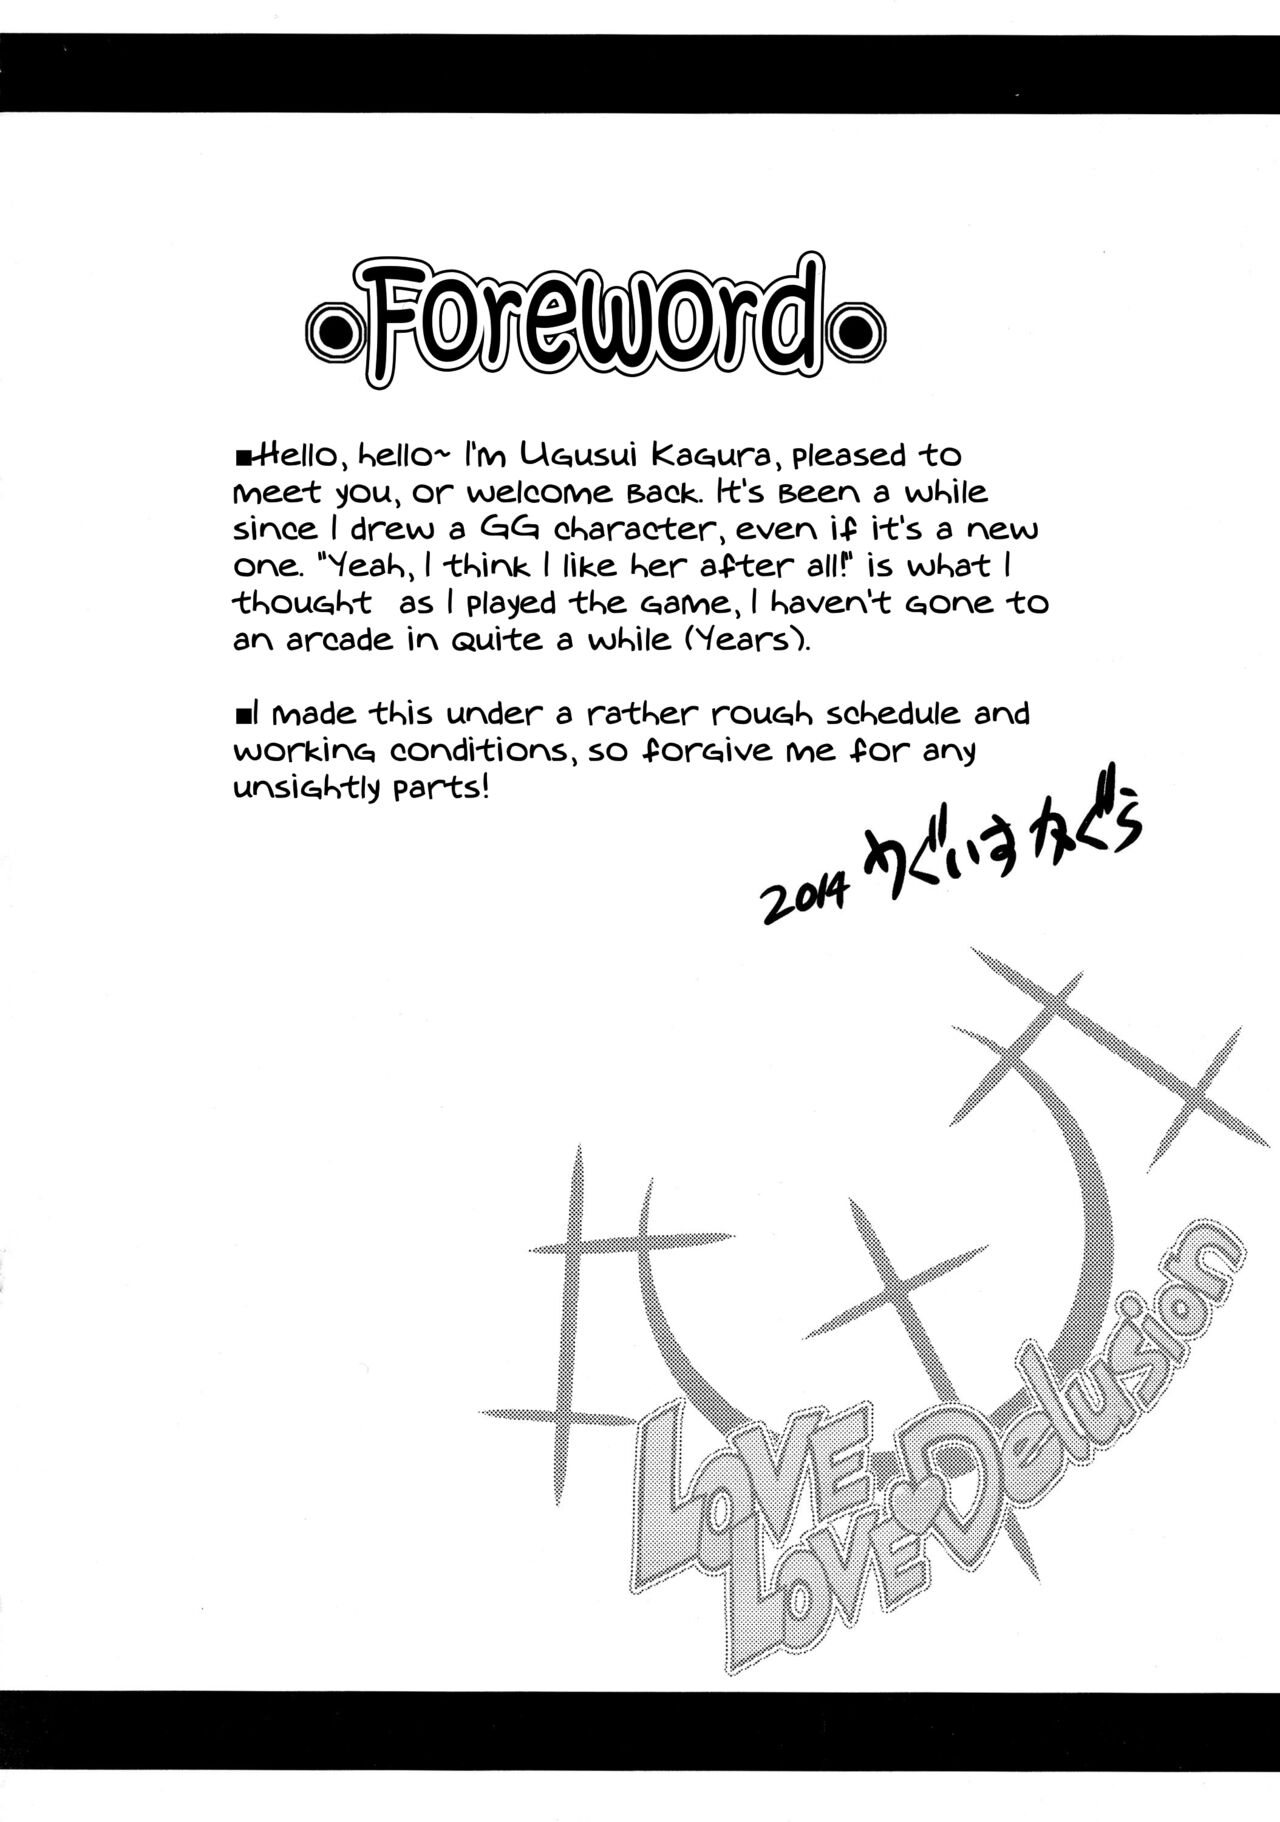 Foreword
■Hello, hello~ I'm Ugusui Kagura, pleased to
meet you, or welcome back. It's been a while
since I drew a GG character, even if it's a new
one. "Yeah, I think I like her after all!" is what I
thought as I played the game, I haven't gone to
an arcade in quite a while (Years).
■I made this under a rather rough schedule and
working conditions, so forgive me for any
unsightly parts!
2014 うぐいすかぐら
LOVE
LOVE♥Delusion